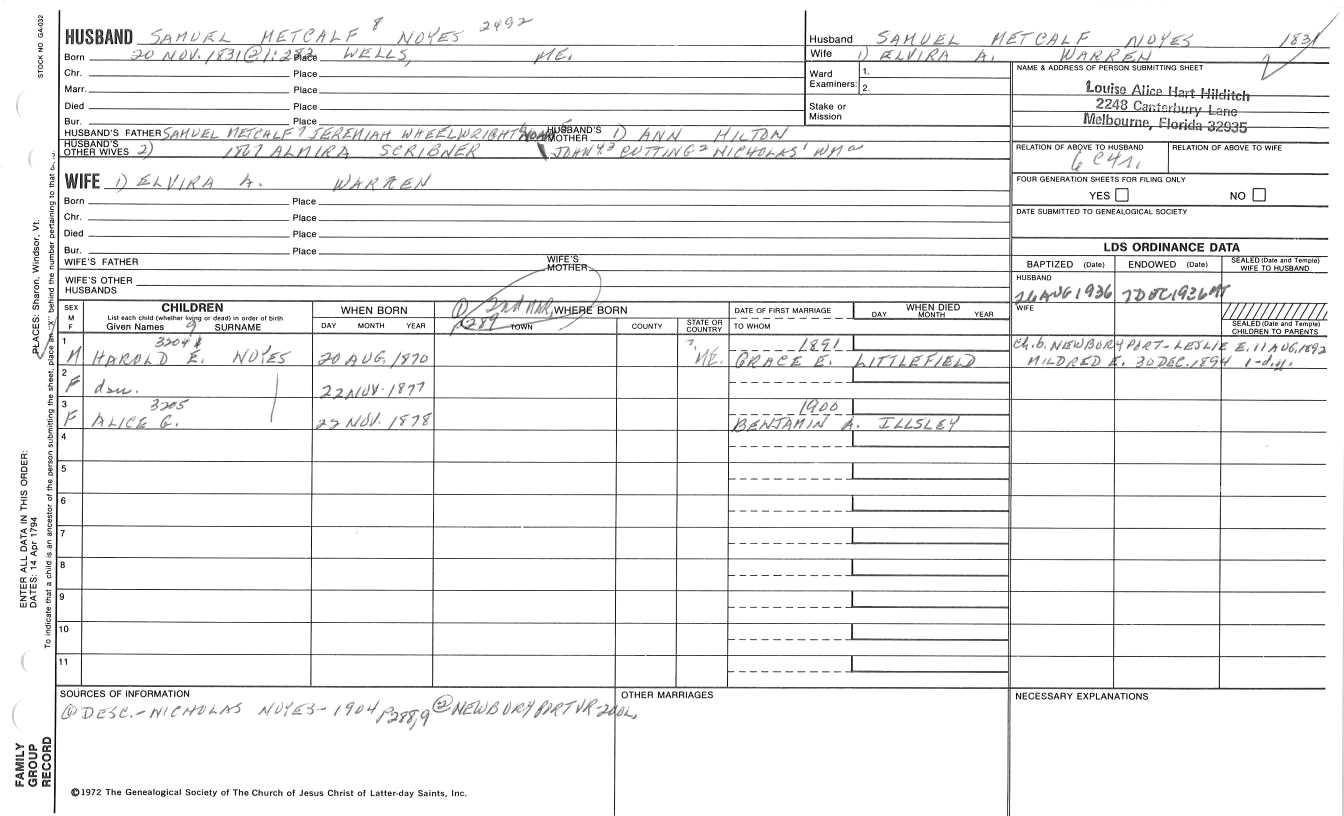 STOCK NO. GA-032
HUSBAND SAMUEL METCALF 8 NOYES 2492
Born 20 NOV. 1831 @ 1:282 Place WELLS, ME.
Chr. Place
Marr. Place
Died Place
Bur. Place
HUSBAND'S FATHER SAMUEL METCALF 7 JEREMIAH WHEELWRIGHT 6 HUSBAND'S MOTHER 1) ANN HILTON
HUSBAND'S OTHER WIVES 2) 1867 ALMIRA SCRIBNER JOHN 4,3 CUTTING 2 NICHOLAS 1 WM a
Husband SAMUEL METCALF NOYES 1831
Wife 1) ELVIRA A. WARREN
Ward Examiners: 1.
2.
Stake or Mission
NAME & ADDRESS OF PERSON SUBMITTING SHEET
Louise Alice Hart Hilditch
2248 Canterbury Lane
Melbourne, Florida 32935
RELATION OF ABOVE TO HUSBAND RELATION OF ABOVE TO WIFE
6 C4r.
FOUR GENERATION SHEETS FOR FILING ONLY
YES NO
DATE SUBMITTED TO GENEALOGICAL SOCIETY
WIFE 1) ELVIRA A. WARREN
Born Place
Chr. Place
Died Place
Bur. Place
WIFE'S FATHER WIFE'S MOTHER
WIFE'S OTHER HUSBANDS
LDS ORDINANCE DATA
BAPTIZED (Date) ENDOWED (Date) SEALED (Date and Temple) WIFE TO HUSBAND
HUSBAND
26 AUG 1936 7 DEC 1936
WIFE
SEALED (Date and Temple) CHILDREN TO PARENTS
SEX M F CHILDREN List each child (whether living or dead) in order of birth Given Names 9 SURNAME
WHEN BORN DAY MONTH YEAR
① 2nd MAR, P289 WHERE BORN TOWN COUNTY STATE OR COUNTRY
DATE OF FIRST MARRIAGE TO WHOM
WHEN DIED DAY MONTH YEAR
1 M 3204 HAROLD E. NOYES 20 AUG. 1870 ?, ME. 1891 GRACE E. LITTLEFIELD
Ch. b. NEWBURYPORT - LESLIE E. 11 AUG. 1892
MILDRED E. 30 DEC. 1894 1-d.y.
2 F dau. 22 NOV. 1877
3 F 3205 ALICE G. 25 NOV. 1878 1900 BENJAMIN A. ILLSLEY
4
5
6
7
8
9
10
11
SOURCES OF INFORMATION
① DESC. - NICHOLAS NOYES - 1904 P288,9 ② NEWBURYPORT VR-
OTHER MARRIAGES
NECESSARY EXPLANATIONS
©1972 The Genealogical Society of The Church of Jesus Christ of Latter-day Saints, Inc.
FAMILY GROUP RECORD
ENTER ALL DATA IN THIS ORDER:
DATES: 14 Apr 1794
PLACES: Sharon, Windsor, Vt.
To indicate that a child is an ancestor of the person submitting the sheet, place an "X" behind the number pertaining to that